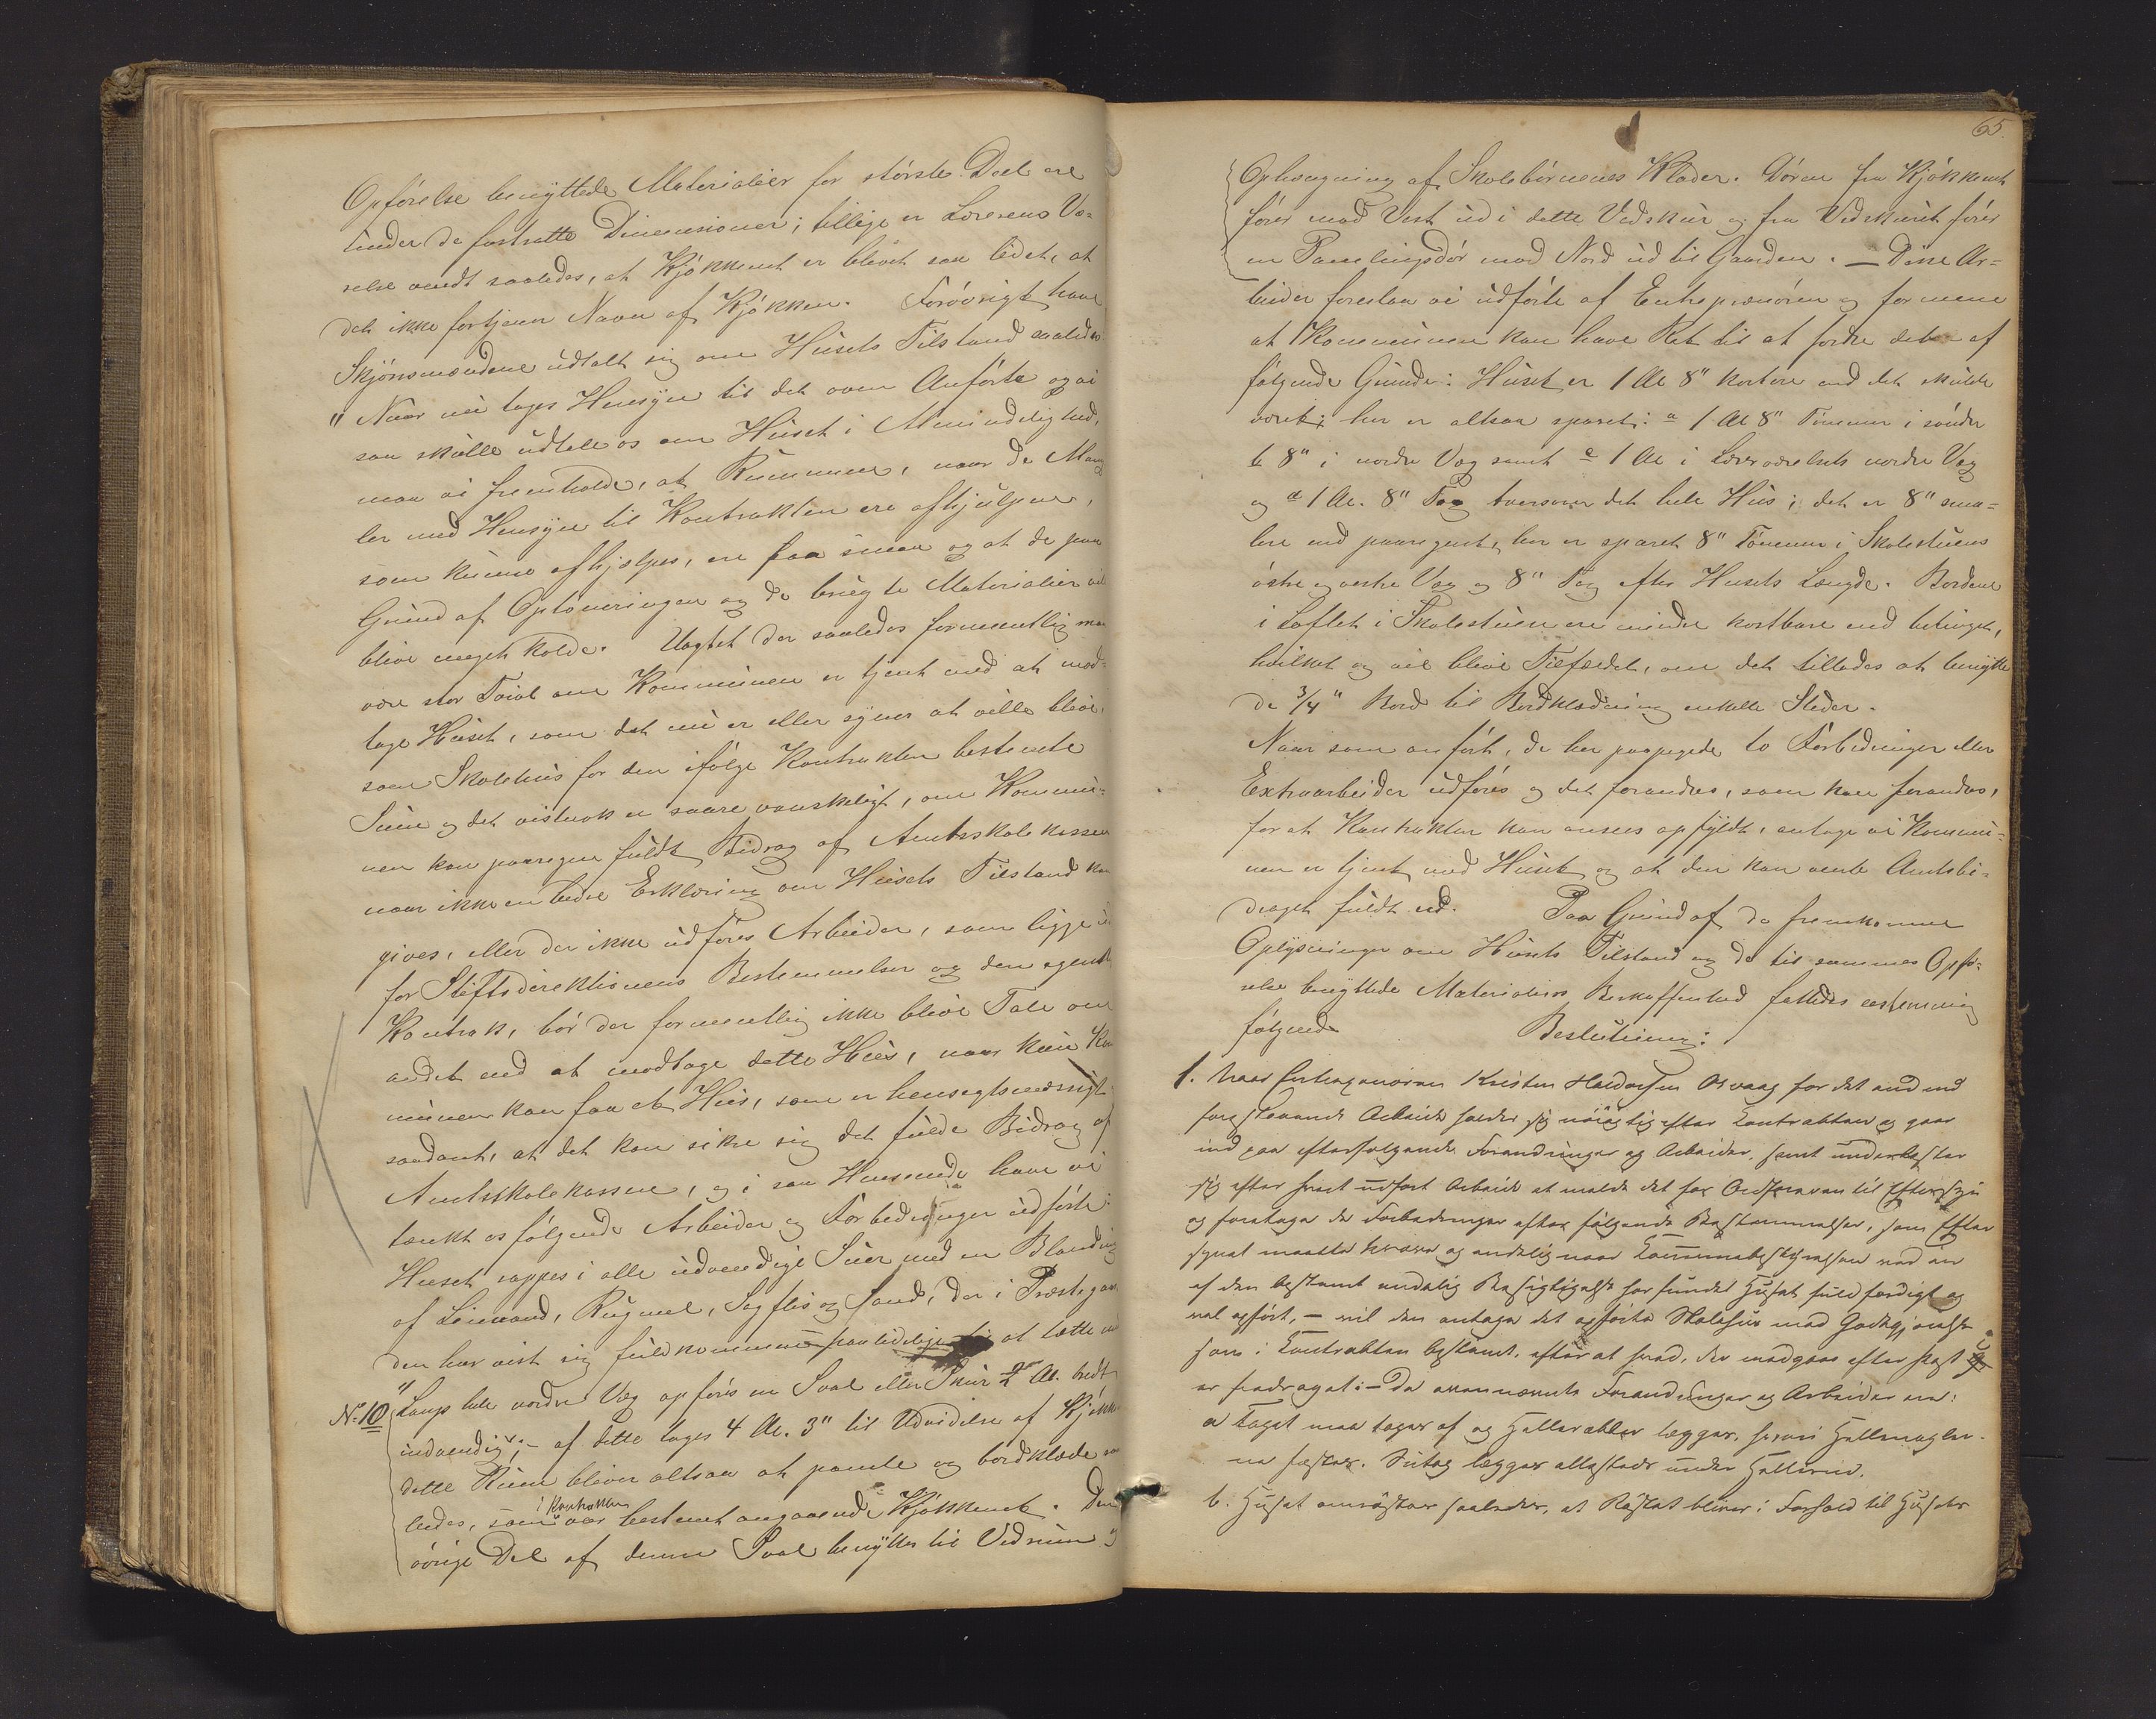 Opförelse benyttede Materialier for störste Deel ere
under de fastsatte Dimensioner; tillige er Lærerens Væ-
relse vendt saaledes, at Kjökkenet er blevet saa lidet, at
det ikke fortjener Navn af Kjökken. Forövrigt have
Skjönsmændene udtalt sig om Husets Tilstand saaledes
"Naar vi tager Hensyn til det oven Anförte og vi
saa skulle udtale os om Huset i Almindelighed,
maa vi fremholde, at Rummene, naar de Mang
ler med Hensyn til Kontrakten ere afhjulpne,
som kunne afhjælpes, ere saa smaa og at de paa
Grund af Optömringen og de brugte Materialier vil
blive meget kolde. Uagtet der saaledes formentlig maa
være stor Tvivl om Kommunen er tjent med at mod-
tage Huset, som det nu er eller synes at ville blive,
som Skolehus for den ifölge Kontrakten bestemte
Sum og det vistnok er saare vanskeligt, om Kommu-
nen kan paaregne fuldt Bidrag af Amtsskolekassen
naar ikke en bedre Erklæring om Husets Tilstand kan
gives, eller der ikke udföres Arbeider, som ligge u
for Stiftsdirektionens Bestemmelser og den egentl
Kontrakt, bör der formentlig ikke blive Tale om
andet end at modtage dette Hus, naar kun Kom
munen kan faa et Hus, som er hensigtsmæssigt
saadant, at det kan sikre sig det fulde Bidrag af
Amtsskolekassen, og i saa Henseende have vi
tænkt os fölgende Arbeider og Forbedringer udförte:
Huset sappes i alle udvendige Suer med en Blanding
af Leirvand, Rugmel, Sagflis og Sand, der i Præstegaar
den har vist sig fuldkommen paalidelige til at tætte med
No 10 "Langs hele nordre Væg opföres en Sval eller Skur 2 Al. bredt
indvendig; - af dette tages 4 Al. 3" til Udvidelse af Kjökke
dette Rum bliver altsaa at panele og bordklæde saa
ledes, som i Kontrakten var bestemt angaaende Kjökkenet. Den
övrige Del af denne Sval benyttes til Vedrum og
65.
Ophængning af Skolebörnenes Klæder. Dören fra Kjökkenet
förer mod Vest ud i dette Vedskur og fra Vedskuret förer
en Panelingsdör mod Nord ud til Gaarden. — Disse Ar-
beider foreslaa vi udförte af Entreprenören og formene
at Kommunen kan have Ret til at fordre det af
fölgende Grunde: Huset er 1 Al 8" kortere end det skulde
været; her er altsaa sparet: a 1 Al 8" Tömmer i söndre
b 8" i nordre Væg samt c 1 Al i Lærerværelsets nordre Væg
og d 1 Al. 8" Tag tversover det hele Hus; det er 8" sma-
lere end paaregnet, her er sparet 8" Tömmer i Skolestuens
östre og vestre Væg og 8" Tag efter Husets Længde. Bordene
i Loftet i Skolestuen ere mindre kostbare end betinget,
hvilket og vil blive Tilfældet, om det tillades at benytte
de 3/4" Bord til Bordklædning enkelte Steder.
Naar som anfört, de her paapegede to Forbedringer eller
Extraarbeider udföres og det forandres, som kan forandres,
for at Kontrakten kan ansees opfyldt, antage vi Kommu-
nen er tjent med Huset og at den kan vente Amtsbi-
draget fuldt ud. Paa Grund af de fremkomne
Oplysninger om Husets Tilstand og de til sammes Opfö-
relse benyttede Materialiers Beskaffenhed fattedes eenstemmig
fölgende Beslutning:
1. Naar Entreprenören Kristen Haldorsen Osvaag for det end
forestaaende Arbeide holder sig nöiagtig efter Kontrakten og gaar
ind paa efterfölgende Forandringer og Arbeider, samt underkaster
sig efter hvert udfört Arbeide at melde det for Ordföreren til Eftersyn
og foretage de Forbedringer efter fölgende Bestemmelser, som Efter
synet maatte kræve og endelig naar Kommunebestyrelsen ved en
af den bestemt endelig Besigtigelse har fundet Huset fuldfærdigt og
vel opfört, — vil den antage det opförte Skolehus mod Godtgjörelse
som i Kontrakten bestemt, efter at hvad, der medgaar efter Post 2
er fradraget: — De ovennævnte Forandringer og Arbeider ere:
a Taget maa tages af og Helleræbler lægges, hvori Hellenagler-
ne fæstes. Sutag lægges allestedes under Hellerne.
b. Huset omröstes saaledes, at Röstet bliver i Forhold til Husets